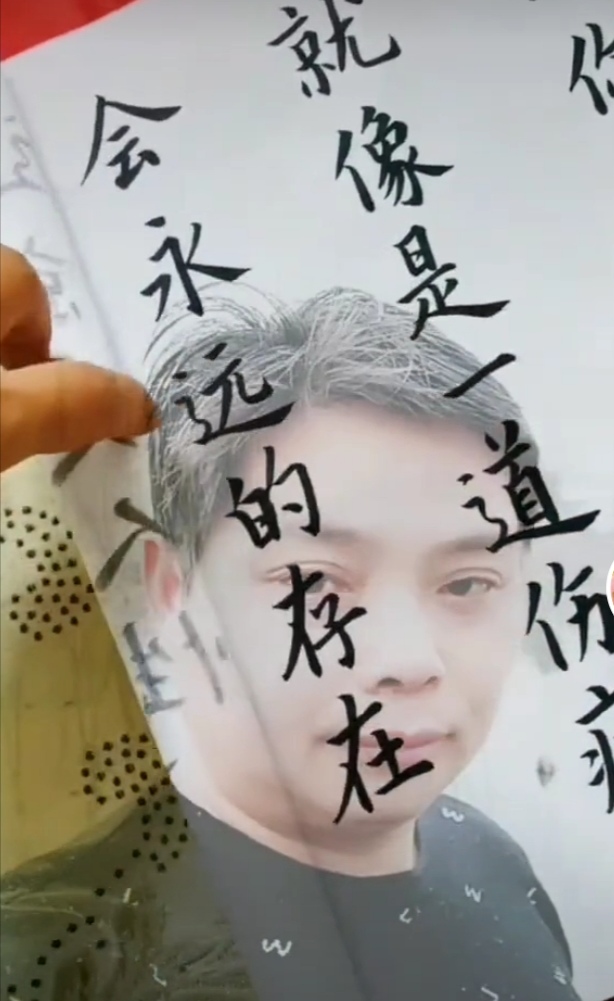 你
就像是一道伤疤
会永远的存在